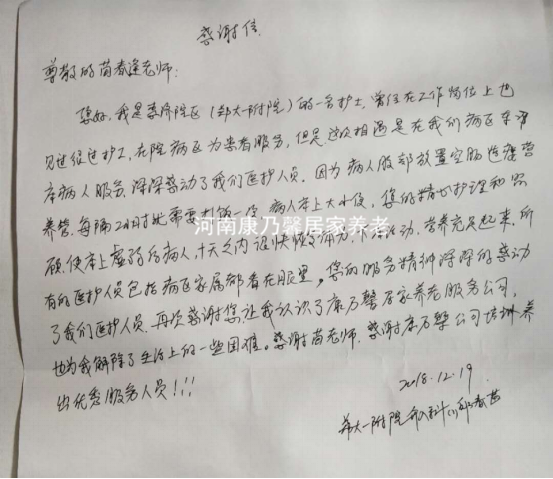 感谢信
尊敬的苗春逢老师:
您好,我是郑东院区(郑大一附院)的一名护士,曾经在工作岗位上也
见过经过护工,在院病区为患者服务,但是,这次相遇是在我们病区车
床病人服务,深深感动了我们医护人员。因为病人腹部放置空肠造瘘营
养管,每隔2小时需要打一次,病人床上大小便,您的精心护理和照
顾,使本上虚弱的病人,十天之内很快恢复体力,下床活动,营养充足起来,所
有的医护人员包括病区家属都看在眼里。您的服务精神深深的感动
了我们医护人员,再次感谢您,让我认识了康乃馨居家养老服务公司,
也为我解除了生活上的一些困难。感谢苗老师,感谢康乃馨公司培训养
出优秀服务人员!!!
2018.12.19
郑大一附院
河南康乃馨居家养老